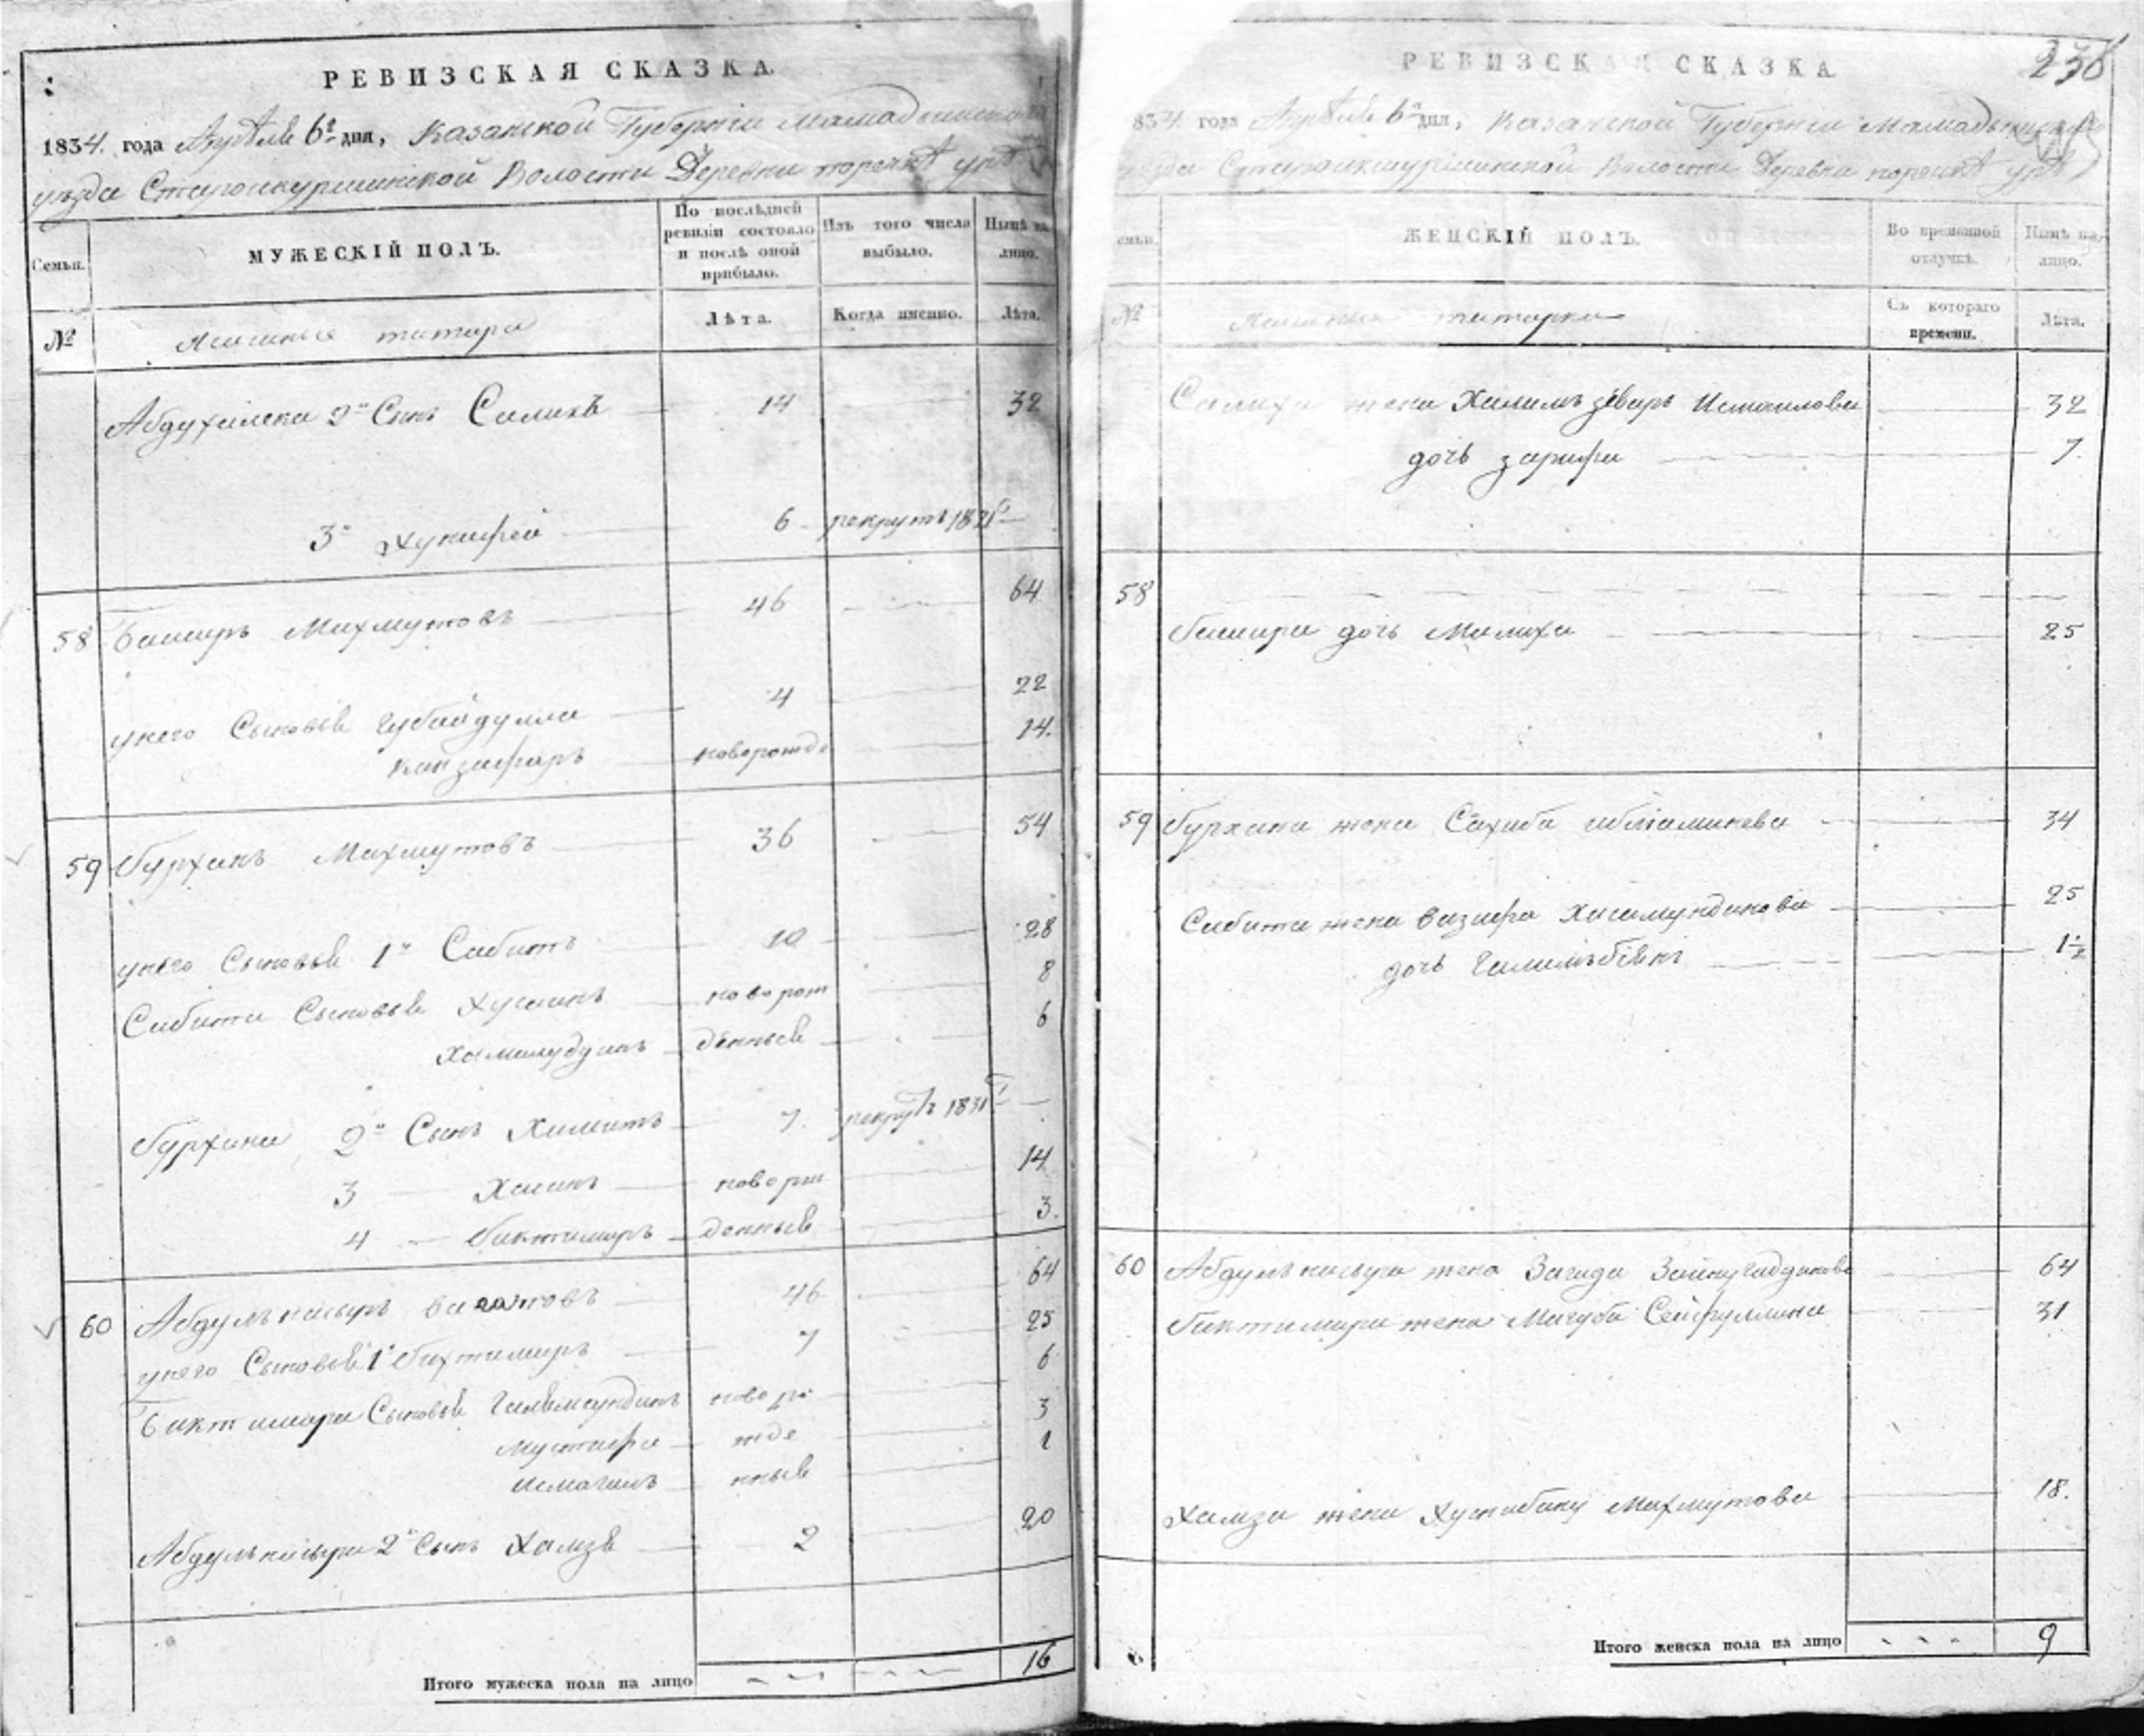 РЕВИЗСКАЯ СКАЗКА
1834. года Апреля 6го дня, Казанской Губернии Мамадышскаго
уезда Староикшурминской Волости Деревни поречкѣ урѣ
Семьи.
МУЖЕСКІЙ ПОЛЪ.
По послѣдней ревизіи состояло и послѣ оной прибыло.
Изъ того числа выбыло.
Нынѣ на лицо.
№
Ясашные татара
Лѣта.
Когда именно.
Лѣта.
Абдухалека 2й Сынъ Салихъ 14 32
3й Хунафей 6 рекрутъ 1831
58 Баширъ Махмутовъ 46 64
у него Сыновья Губайдулла 4 22
Канзафаръ новорожде 14.
59 Бурханъ Махмутовъ 36 54
у него Сыновья 1й Сабитъ 10 28
Сабита Сыновья Хусаинъ новорож 8
Хамалудинъ денные 6
Бурхана 2й Сынъ Хамитъ 7. рекрутъ 1831
3 Хасанъ новорож 14
4 Биктимиръ денные 3.
60 Абдулънасыръ 46 64
у него Сыновья 1й Бихтимиръ 7 25
Биктимира Сыновья новоро 6
Мустафа жде 3
Исмагилъ нные 1
Абдулънасыра 2й Сынъ Хамзя 2 20
Итого мужеска пола на лицо 16
РЕВИЗСКАЯ СКАЗКА
236
834. года Апреля 6го дня, Казанской Губернии Мамадышскаго
уезда Староикшурминской Волости Деревни поречкѣ урѣ
семьи.
ЖЕНСКІЙ ПОЛЪ.
Во временной отлучкѣ.
Нынѣ на лицо.
№
Ясашные татарки
Съ котораго времени.
Лѣта.
Салиха жена Халимъзѣваръ Исмаилова 32
дочь зарифа 7
58
Башира дочь Малиха 25
59 Бурхана жена Сахиба 34
Сабита жена Вазифа Хисамундинова 25
дочь Галимъбѣкѣ 1½
60 Абдулънасыра жена Загида 64
Биктимира жена Магуба Сейфуллина 31
Хамза жена Махмутова 18.
Итого женска пола на лицо 9